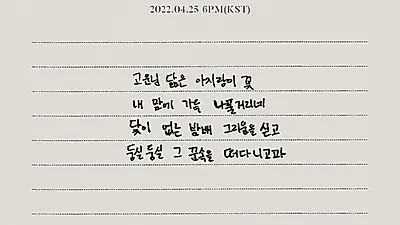 2022.04.25 6PM(KST)
고운님 닮은 아지랑이 꽃
내 맘에 가득 나풀거리네
닻이 없는 밤배 그리움을 싣고
둥실둥실 그 꿈속을 떠다니고파